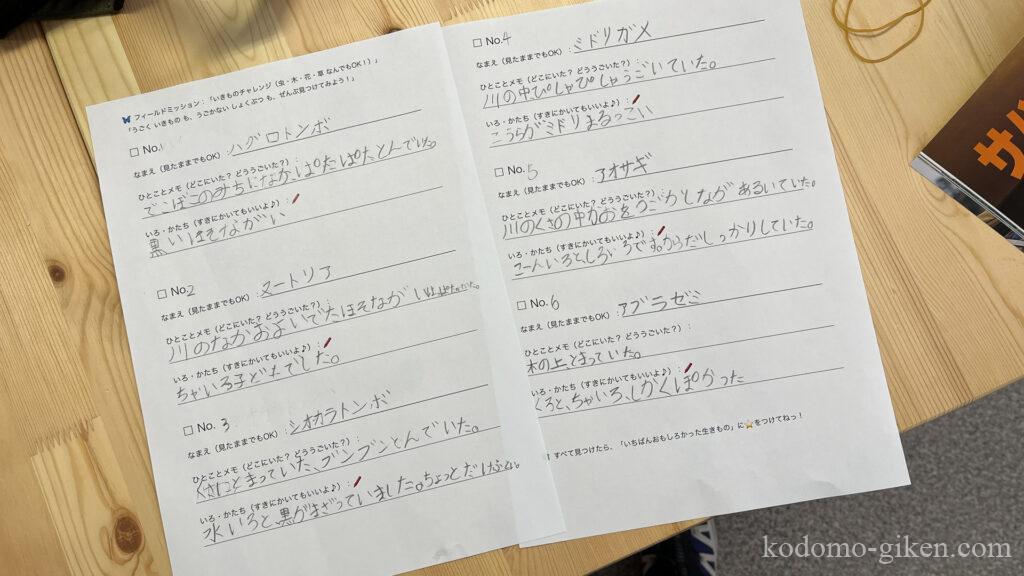 🦋 フィールドミッション：「いきものチャレンジ（虫・木・花・草 なんでもOK！）」
「うごく いきもの も、うごかない しょくぶつ も、ぜんぶ見つけてみよう！」
□ No.1
なまえ（見たままでもOK）：ハグロトンボ
ひとことメモ（どこにいた？ どううごいた？）：
でこぼこのみちになかぱたぱたとんでいた。
いろ・かたち（すきにかいてもいいよ♪）：
黒いほそながい
□ No.2
なまえ（見たままでもOK）：ヌートリア
ひとことメモ（どこにいた？ どううごいた？）：
川のなかおよいでたほそながい
いろ・かたち（すきにかいてもいいよ♪）：
ちゃいろ
でした。
□ No.3
なまえ（見たままでもOK）：シオカラトンボ
ひとことメモ（どこにいた？ どううごいた？）：
くさにとまっていた、ブンブンとんでいた。
いろ・かたち（すきにかいてもいいよ♪）：
水いろと黒がまざっていました。ちょっとだけ
□ No.4
なまえ（見たままでもOK）：ミドリガメ
ひとことメモ（どこにいた？ どううごいた？）：
川の中ぴしゃぴしゃうごいていた。
いろ・かたち（すきにかいてもいいよ♪）：
こうらがミドリまるっこい
□ No.5
なまえ（見たままでもOK）：アオサギ
ひとことメモ（どこにいた？ どううごいた？）：
川のくさの中かおをうごかしながあるいていた。
いろ・かたち（すきにかいてもいいよ♪）：
こーんいろとしろいろです。からだしっかりしていた。
□ No.6
なまえ（見たままでもOK）：アブラゼミ
ひとことメモ（どこにいた？ どううごいた？）：
木の上、とまっていた。
いろ・かたち（すきにかいてもいいよ♪）：
くろと、ちゃいろ、しかくぽかった
！ すべて見つけたら、「いちばんおもしろかった生きもの」に⭐をつけてねっ！
kodomo-giken.com